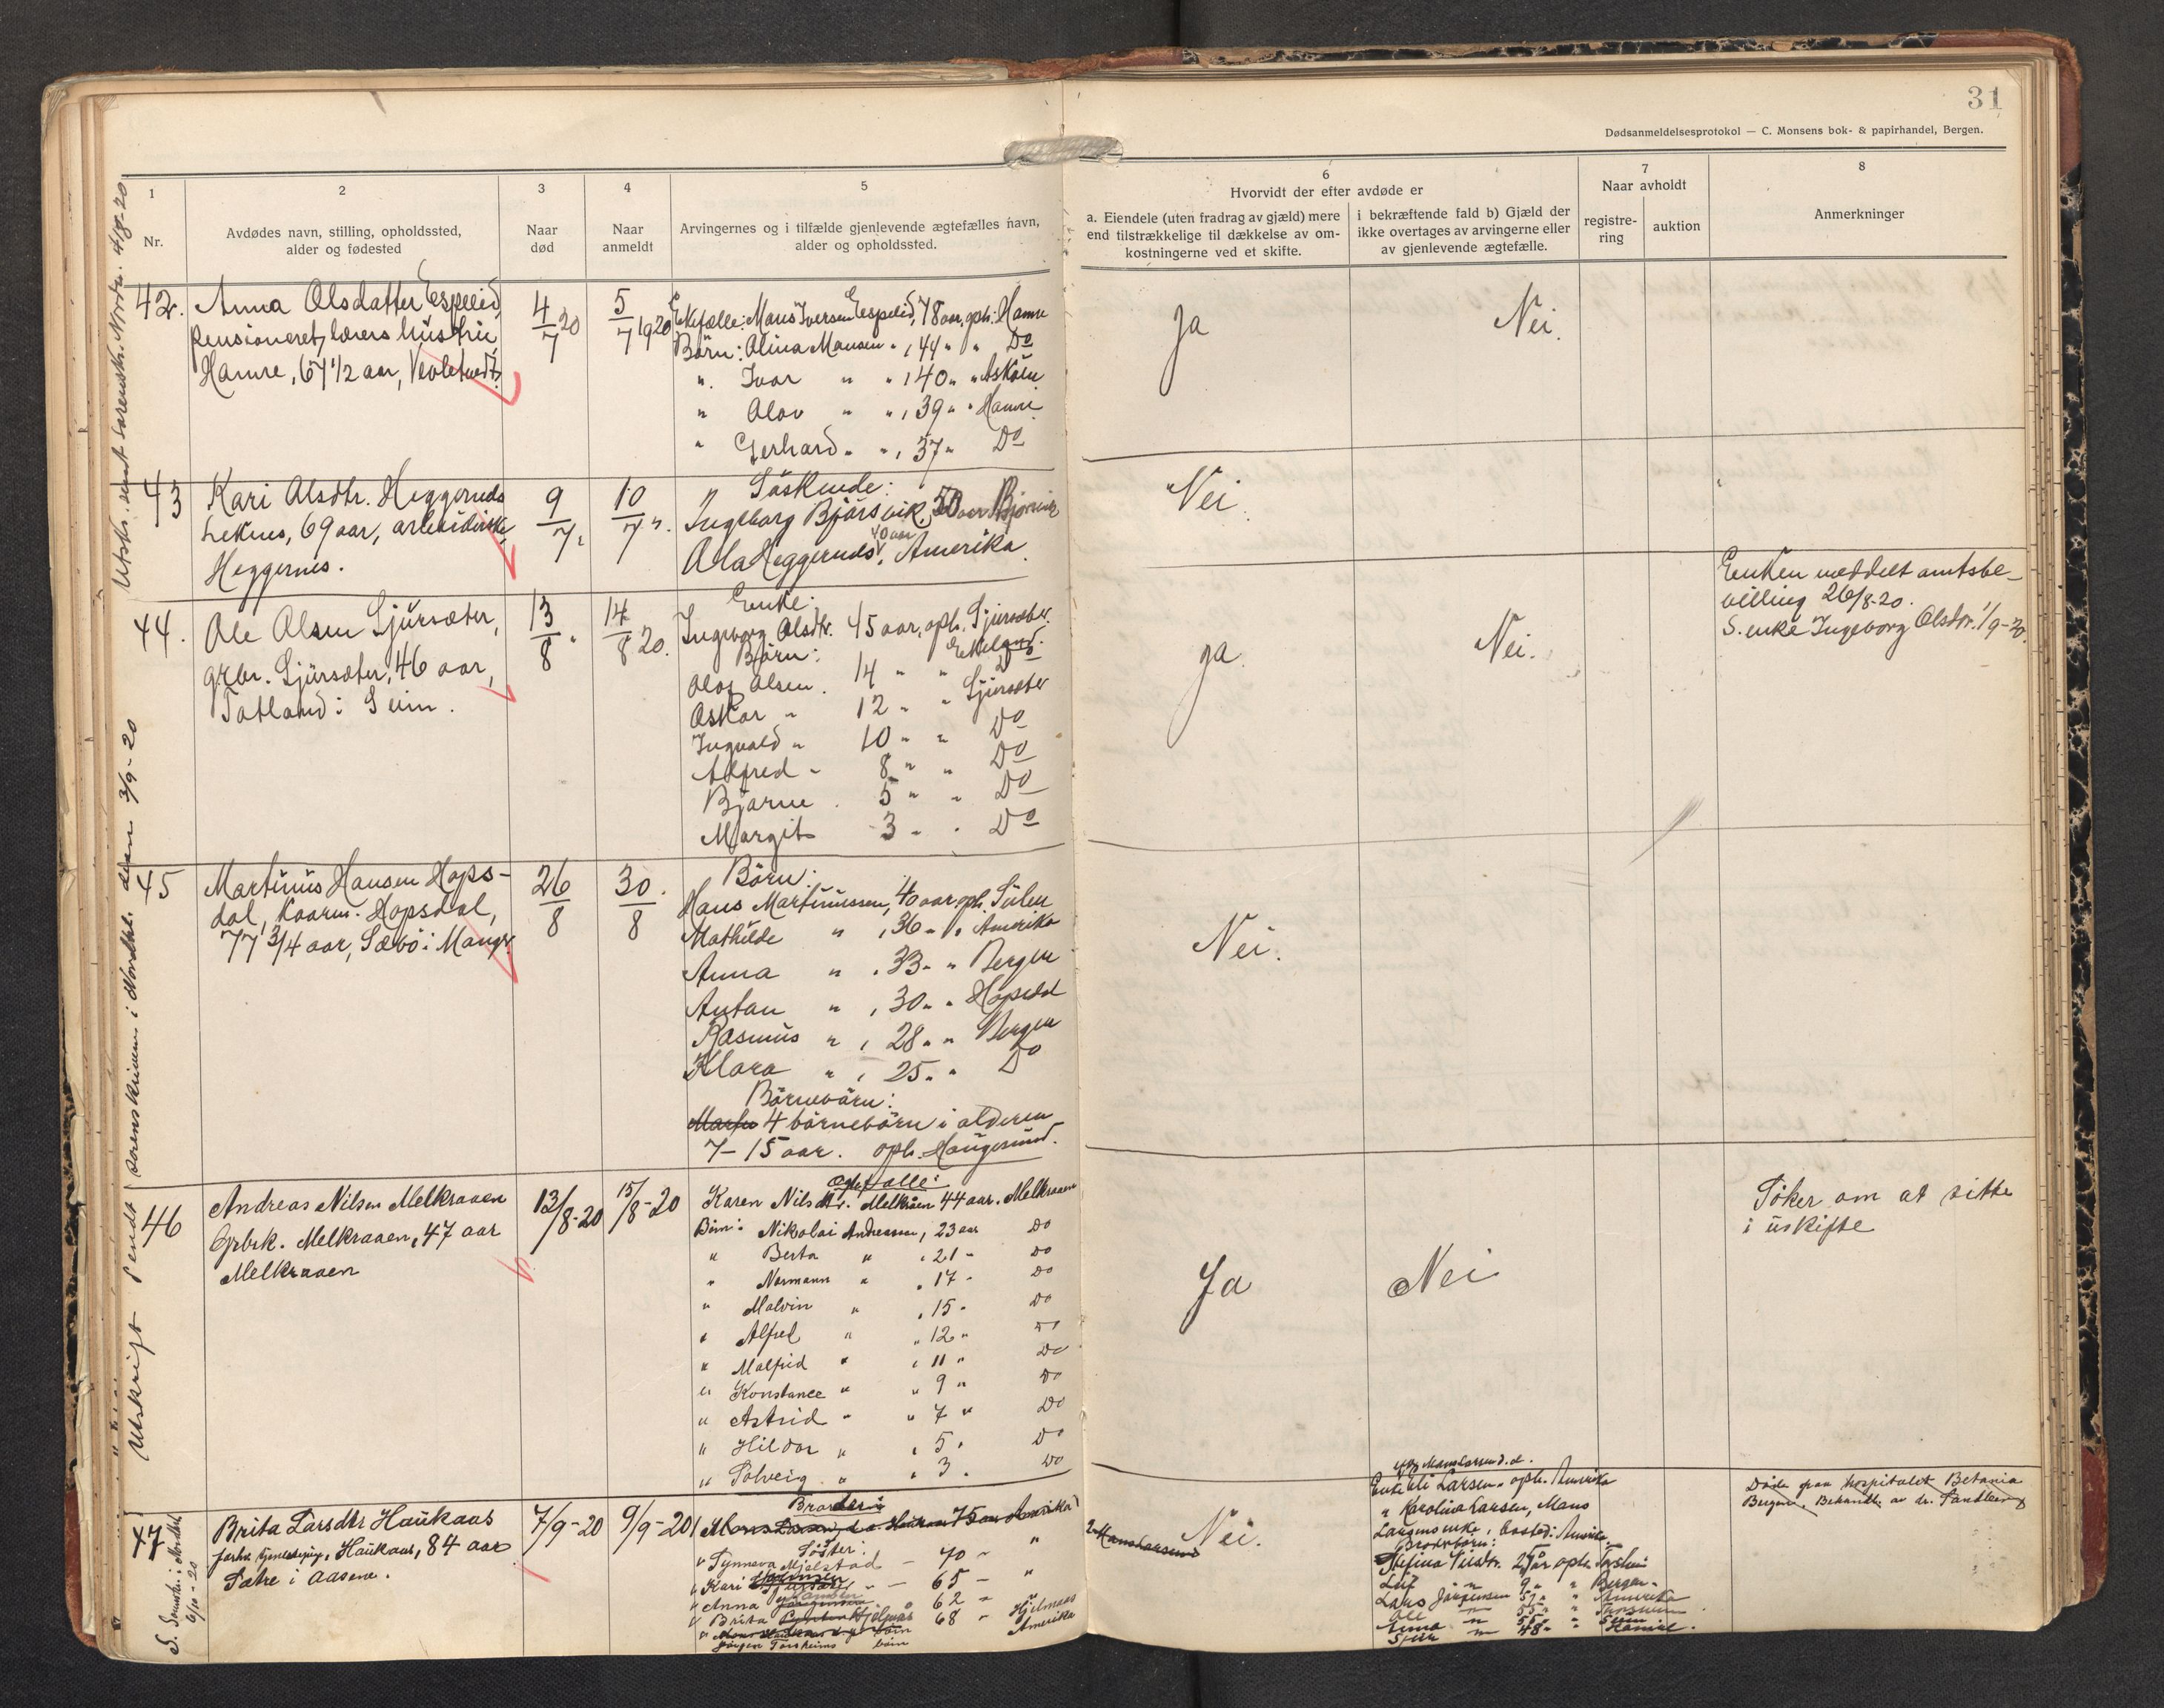 31
Dødsanmeldelsesprotokol — C. Monsens bok- & papirhandel, Bergen.
1
Nr.
2
Avdødes navn, stilling, opholdssted,
alder og fødested
3
Naar
død
4
Naar
anmeldt
5
Arvingernes og i tilfælde gjenlevende ægtefælles navn,
alder og opholdssted.
6
Hvorvidt der efter avdøde er
a. Eiendele (uten fradrag av gjæld) mere
end tilstrækkelige til dækkelse av om-
kostningerne ved et skifte.
i bekræftende fald b) Gjæld der
ikke overtages av arvingerne eller
av gjenlevende ægtefælle.
7
Naar avholdt
registre-
ring
auktion
8
Anmerkninger
42.
Anna Olsdatter Espelid,
pensioneret lærers hustru,
Hamre, 67 1/2 aar,
4/7 20
5/7 1920
Ektefælle: Mons Iversen Espelid, 78 aar, oph. Hamre
Børn: Olina Monsen " , 44 " " Do
" Ivar " " , 40 " " Askøen
" Olav " " , 39 " " Hamre
" Gerhard " " , 37 " Do
Ja
Nei.
43
Kari Olsdtr. Heggernes
Leknes, 69 aar,
Heggernes.
9/7 "
10/7 ".
Søskende:
Ingeborg Bjørsvik, 50 aar Bjørsvik
40 aar
Ola Heggernes, Amerika.
Nei
44.
Ole Olsen Sjursæter,
grbr. Sjursæter, 46 aar,
Totland i Seim.
13/8 "
14/8 20.
Enke:
Ingeborg Olsdtr. 45 aar, oph. Sjursæter
Børn:
Olaf Olsen. 14 " "
Oskar " 12 " " Sjursæter
Ingvald " 10 " " Do
Alfred " 8 " " Do
Bjarne . 5 " " Do
Margit 3 " . Do
Ja.
Nei.
Enken meddelt amtsbe-
villing 26/8-20.
S. enke Ingeborg Olsdtr. 1/9-20.
45
Martinus Hansen Hops-
dal, kaarm. Hopsdal,
77 3/4 aar, Sæbø i Manger
26/8
30/8.
Børn:
Hans Martinussen, 40 aar oph. Sulen
Mathilde " , 36 " " Amerika
Anna " , 33 " " Bergen
Anton " , 30 " " Hopsdal
Rasmus " , 28 " " Bergen
Klara " , 25 " " Do
Børnebørn:
4 børnebørn i alderen
7-15 aar. oph. Haugesund.
Nei.
46
Andreas Nilsen Melkraaen
Grbrk. Melkraaen, 47 aar
Melkraaen
13/8-20
15/8-20
Karen Nilsdtr. Melkraaen 44 aar. Melkraaen
Børn: Nikolai Andreassen, 23 aar Do
" Berta " , 21 " Do
" Normann " , 17 " Do
" Malvin " , 15 " Do
" Alfred " , 12 " Do
" Malfrid " , 11 " Do
" Konstance " " 9 " Do
" Astrid " " 7 " Do
" Hildor " , 5 " Do
" Solveig " , 3 . Do
Ja
Nei
Søker om at sitte
i uskifte
47
Brita Larsdtr Haukaas
Haukaas, 84 aar
Sætre i Aasene.
7/9-20
9/9-20
Brødre:
75 aar Amerika
Søster:
" Synneva Mjelstad - 70 - "
" Kari - 65 - "
" Anna 62 "
" Brita Hjelmaas 68 " Hjelmaas
Amerika
Jørgen Torsheims børn
Nei.
Enke Eli Larsen. oph. Amerika
" Karolina Larsen, Mons
Larsens enke, bosted: Amerika
Broderbørn:
Leif " 9 " " Bergen.
Lars Jørgensen 57 " " Amerika
Ole " 55 " "
Anna " 50 " " Seim
Sjur " 48 " " Hamre.
Døde paa hospitalet Betania
Bergen, Behandl. av dr. Sandberg
Utskrift sendt sorenskriveren i Nordhl. den 3/9-20
6/10-20